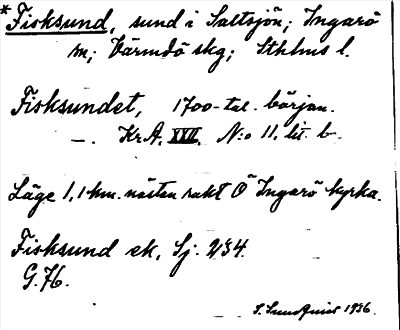 *Fisksund, sund i Saltsjön; Ingarö
sn; Värmdö skg; Sthlms l.
Fisksundet, 1700-tal. början.
—. KrA. XXII. N:o 11. lit. b.
Läge 1,1 km. nästan rakt Ö Ingarö kyrka.
Fisksund ek, Sj. 234.
G. 76.
S. Sundqvist 1936.